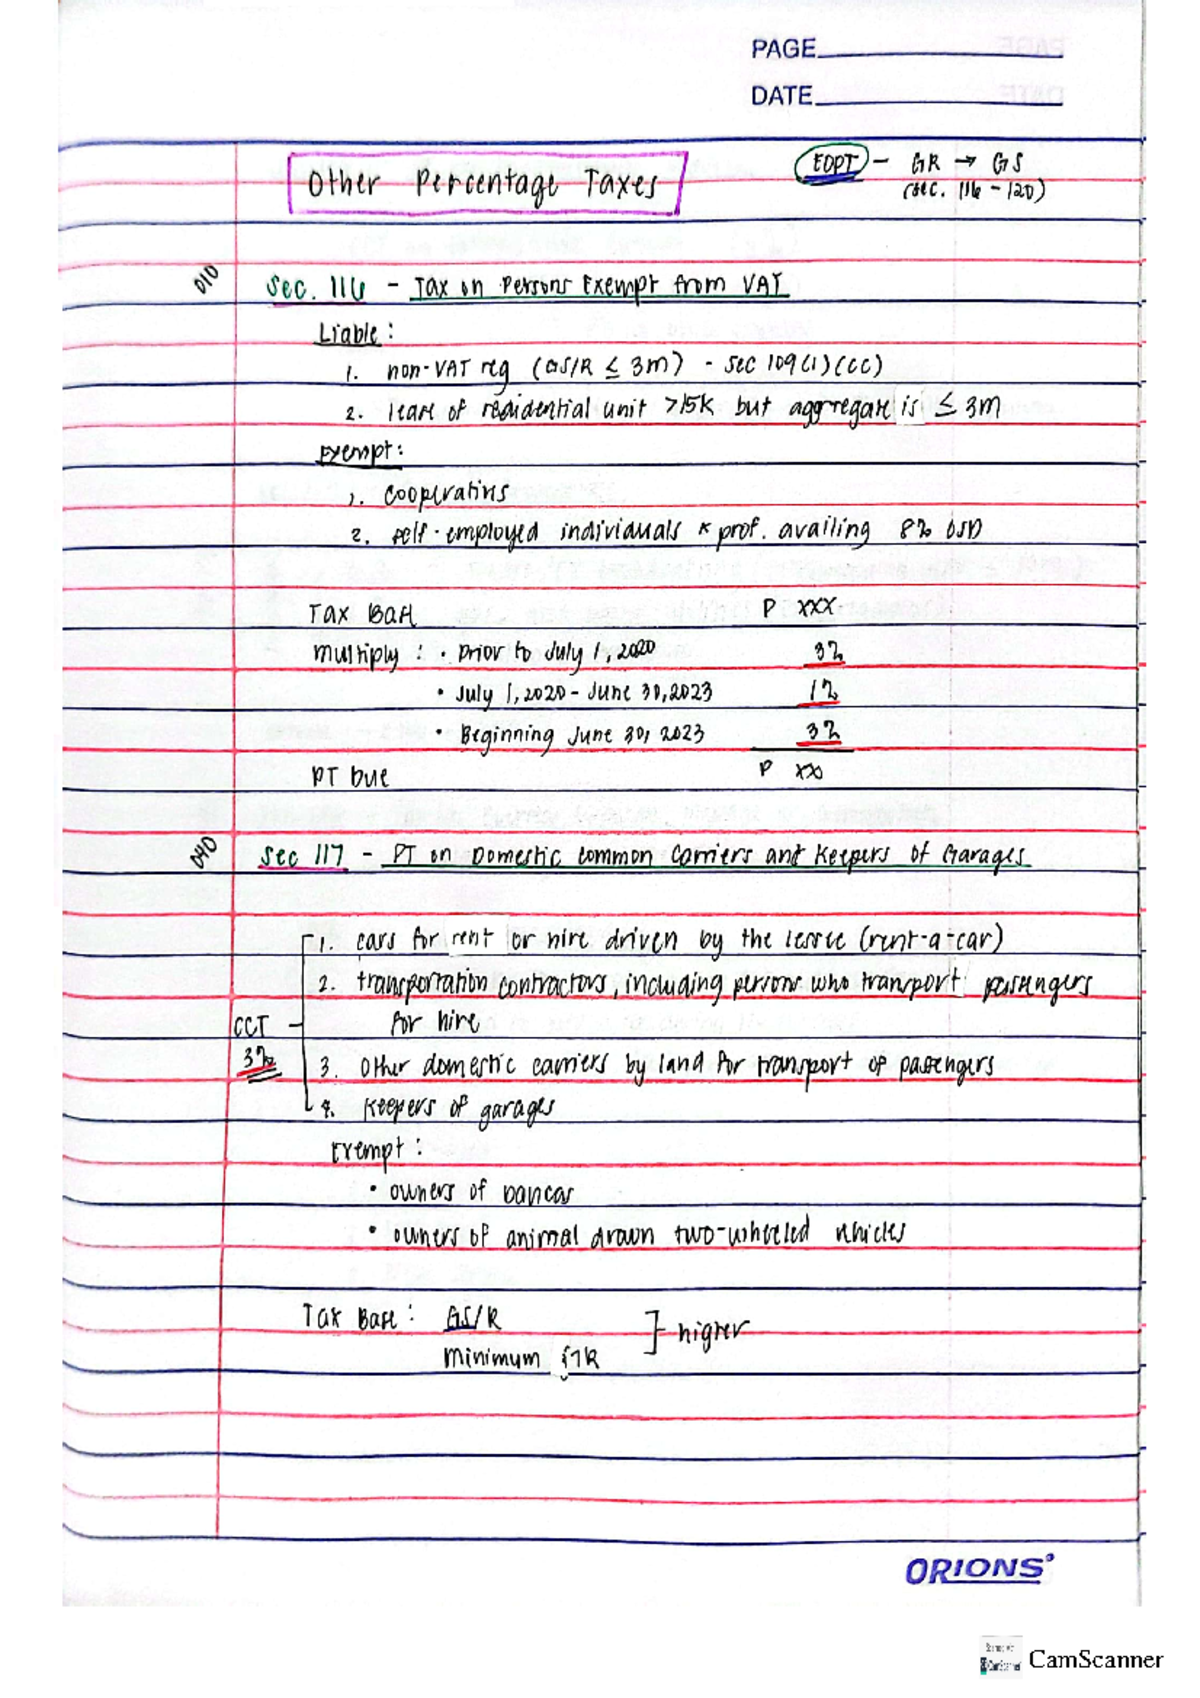 PAGE
DATE
Other Percentage Taxes
EOPT - GR → GS
(sec. 116 - 120)
010
Sec. 116 - Tax on Persons Exempt from VAT
Liable:
1. non-VAT reg (GS/R ≤ 3M) - Sec 109(1)(CC)
2. lease of residential unit >15K but aggregate is ≤ 3M
Exempt:
1. cooperatives
2. self-employed individuals & prof. availing 8% OSD
Tax Base P XXX
Multiply: • Prior to July 1, 2020 3%
• July 1, 2020 - June 30, 2023 1%
• Beginning June 30, 2023 3%
PT Due P XX
040
Sec 117 - PT on Domestic Common Carriers and Keepers of Garages
1. cars for rent or hire driven by the lessee (rent-a-car)
2. transportation contractors, including persons who transport passengers
for hire
CCT
3%
3. Other domestic carriers by land for transport of passengers
4. Keepers of garages
Exempt:
• owners of bancas
• owners of animal drawn two-wheeled vehicles
Tax Base: GS/R
Minimum
] higher
ORIONS
CamScanner